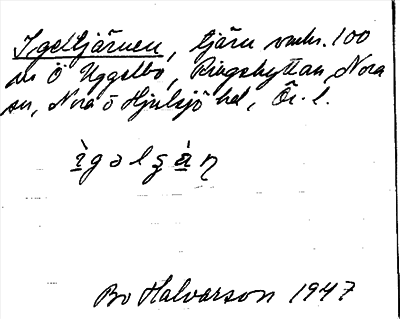 Igeltjärnen, tjärn omkr. 100
m Ö Uggelbo, Ringshyttan, Nora
sn, Nora o Hjulsjö bel, Ör. l.
ìgəlʂàn̥
Bo Halvarson 1947